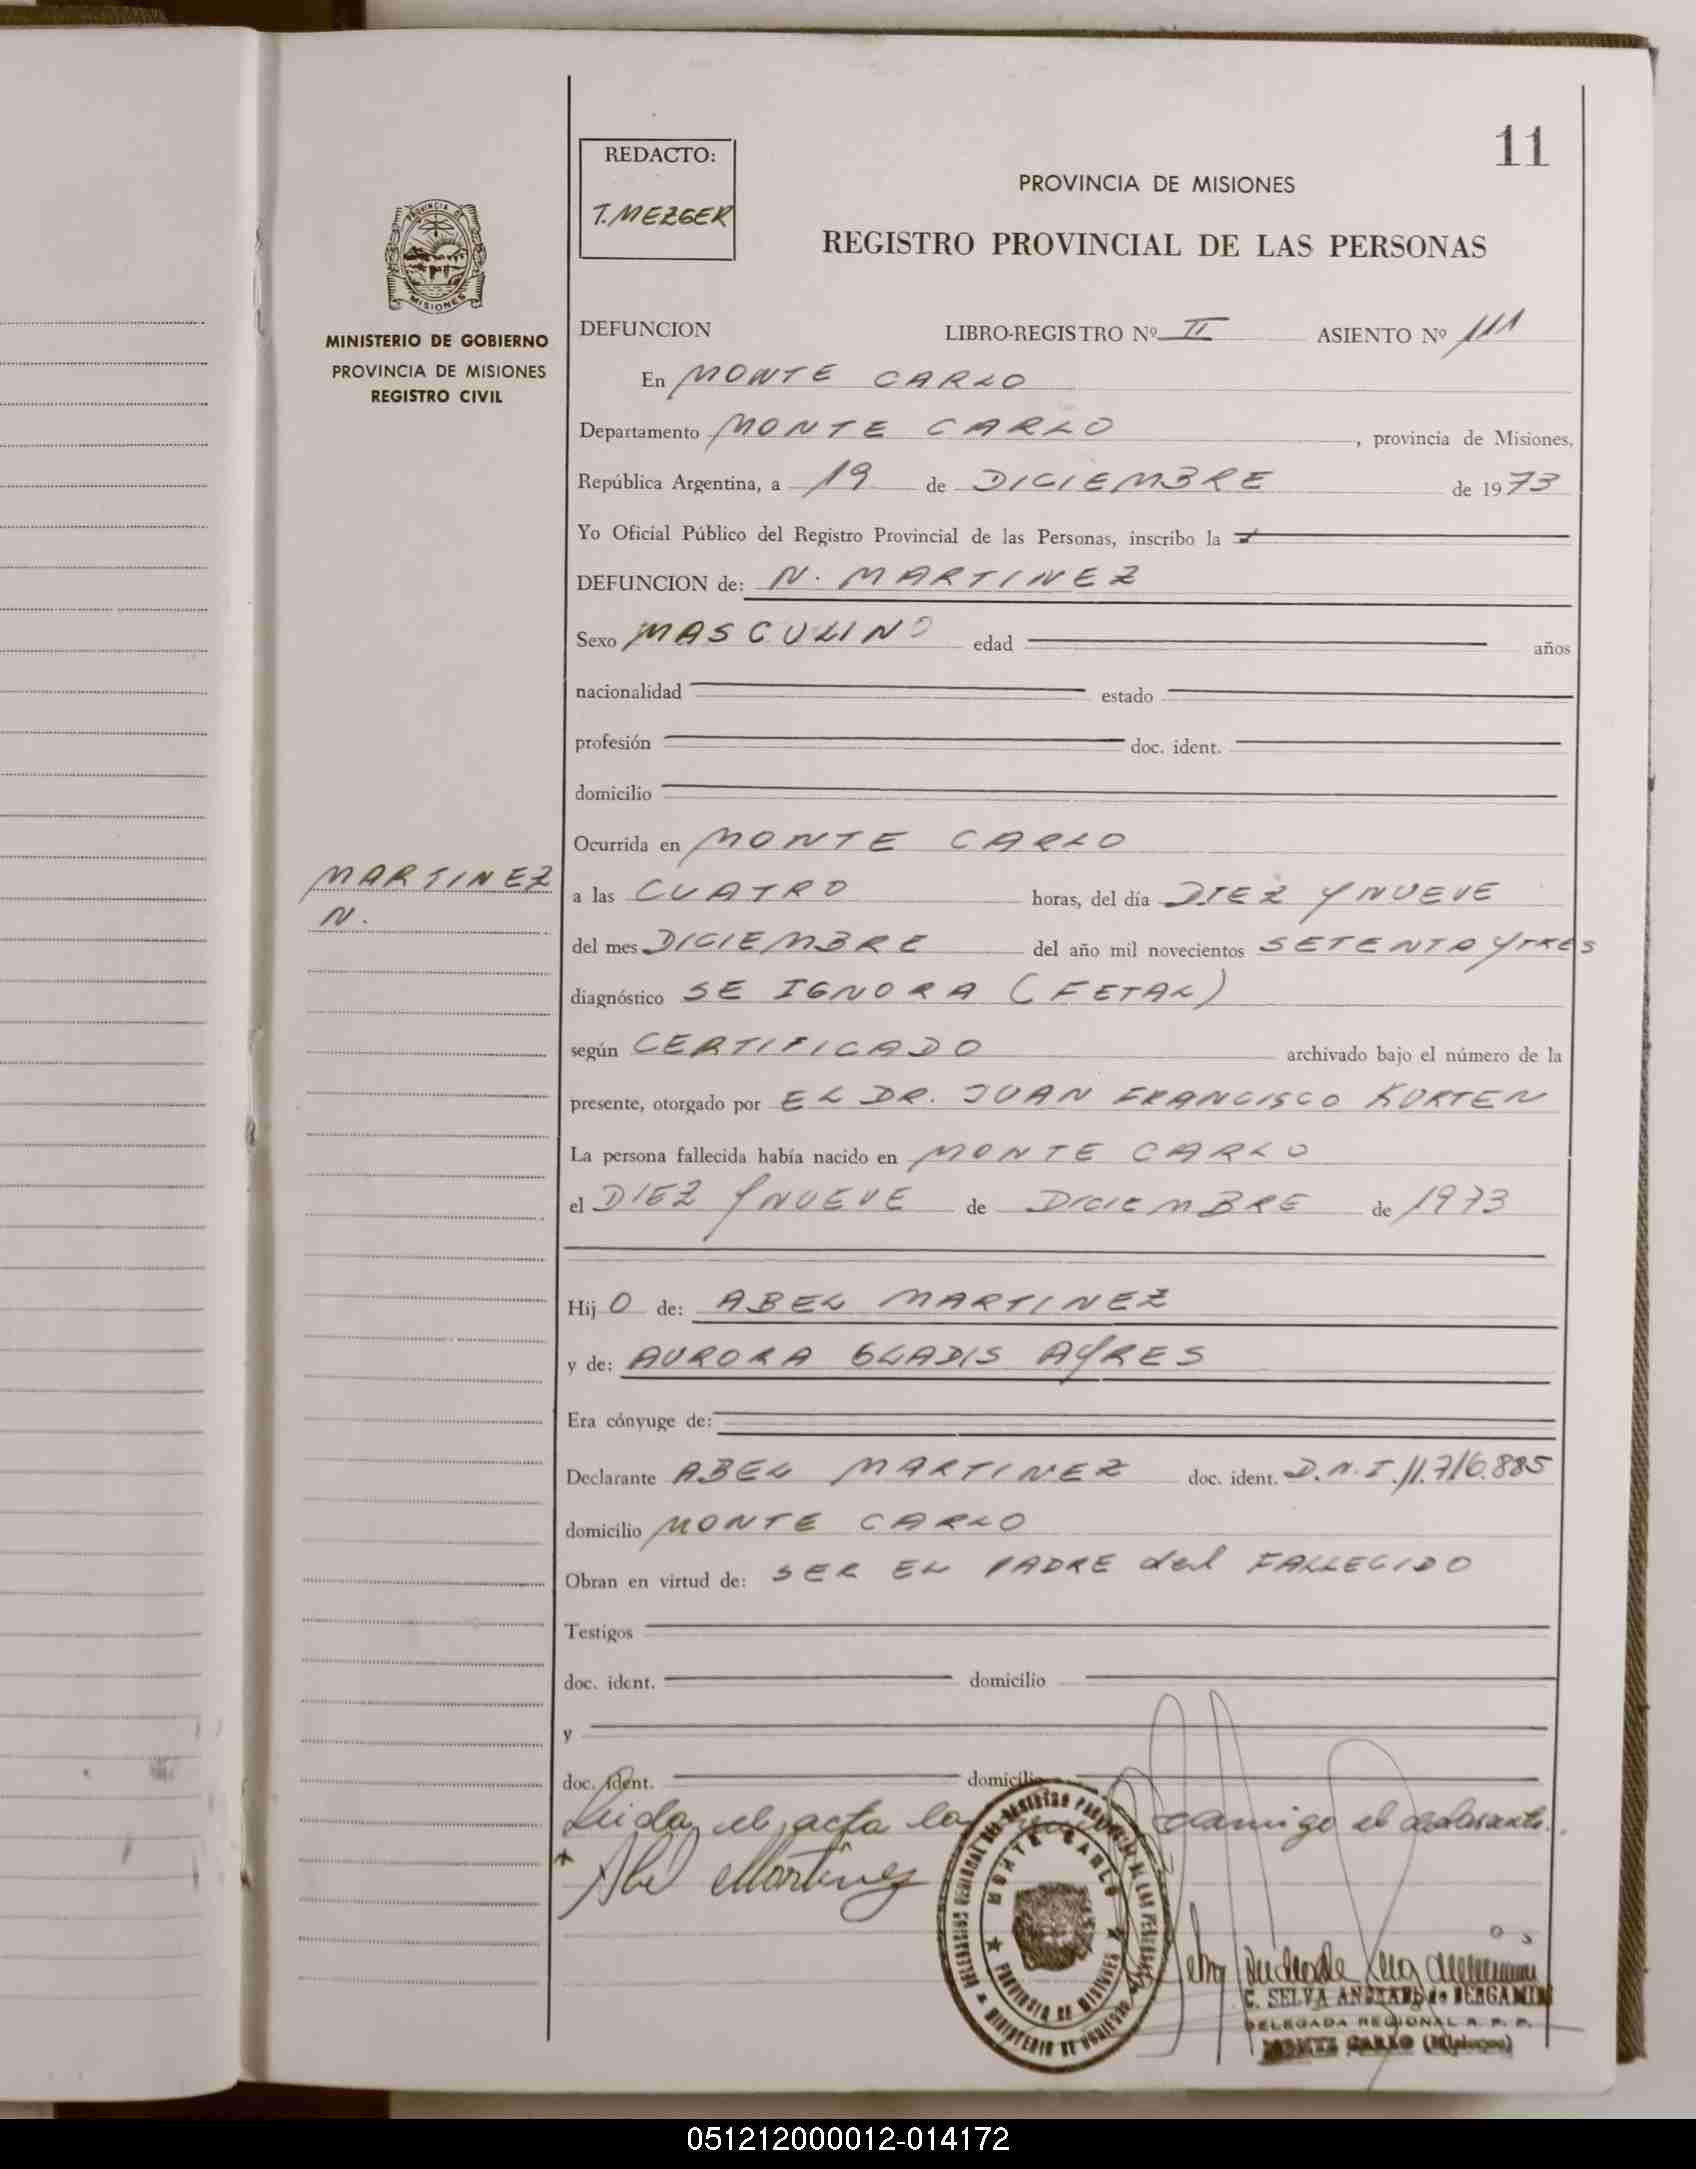 11
REDACTO:
T. MEZGER
PROVINCIA DE MISIONES
REGISTRO PROVINCIAL DE LAS PERSONAS
PROVINCIA DE
MISIONES
MINISTERIO DE GOBIERNO
PROVINCIA DE MISIONES
REGISTRO CIVIL
DEFUNCION LIBRO-REGISTRO Nº II ASIENTO Nº 111
En MONTE CARLO
Departamento MONTE CARLO, provincia de Misiones,
República Argentina, a 19 de DICIEMBRE de 1973
Yo Oficial Público del Registro Provincial de las Personas, inscribo la
DEFUNCION de: N. MARTINEZ
Sexo MASCULINO edad años
nacionalidad estado
profesión doc. ident.
domicilio
Ocurrida en MONTE CARLO
MARTINEZ
N.
a las CUATRO horas, del día DIEZ Y NUEVE
del mes DICIEMBRE del año mil novecientos SETENTA Y TRES
diagnóstico SE IGNORA (FETAL)
según CERTIFICADO archivado bajo el número de la
presente, otorgado por EL DR. JUAN FRANCISCO KURTEN
La persona fallecida había nacido en MONTE CARLO
el DIEZ Y NUEVE de DICIEMBRE de 1973
Hij O de: ABEL MARTINEZ
y de: AURORA GLADIS AYRES
Era cónyuge de:
Declarante ABEL MARTINEZ doc. ident. D.N.I. 11.716.885
domicilio MONTE CARLO
Obran en virtud de: SER EL PADRE del FALLECIDO
Testigos
doc. ident. domicilio
y
doc. ident. domicilio
Leida el acta la conmigo el declarante.
Abel Martinez
MONTE CARLO
PROVINCIA DE MISIONES
C. SELVA ANDRADE de BERGAMIN
DELEGADA REGIONAL R. P. P.
MONTE CARLO (Misiones)
051212000012-014172